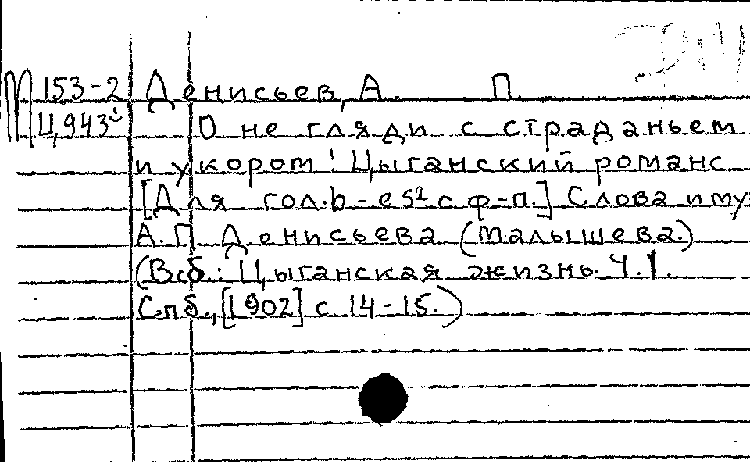 М 153-2 Денисьев, А. П.
Ц943 О не гляди с страданьем
и укором! Цыганский романс
[Для гол. b-es² с ф-п.] Слова и му
А.П. Денисьева (Малышева.)
(В сб.: Цыганская жизнь. Ч.1.
Спб., [1902] с 14-15.)